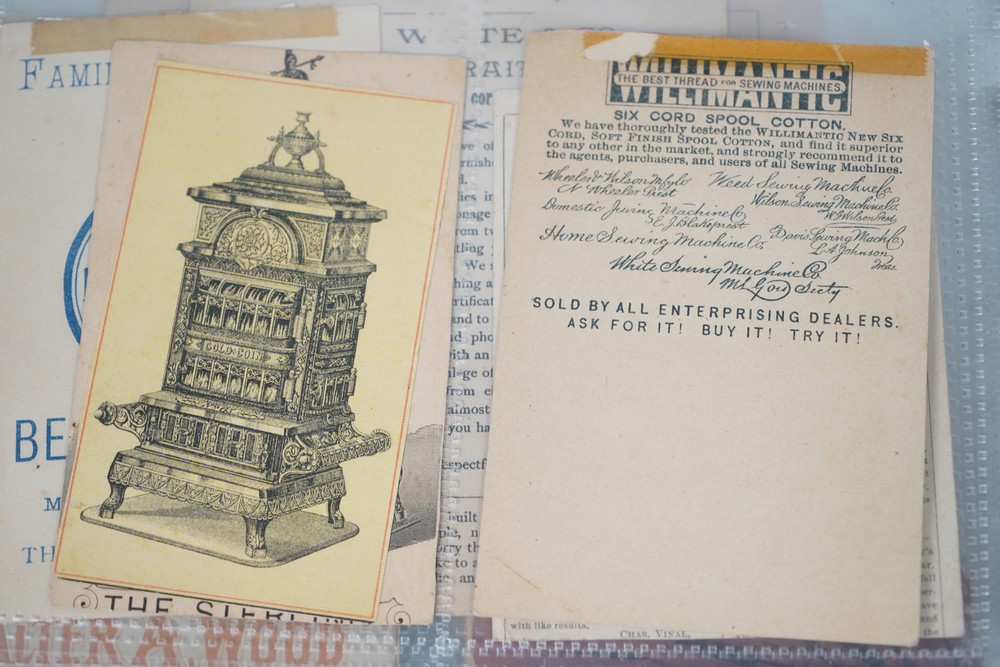 FAMI
BE
M
TH
GOLD COIN
THE
W TE
RAIT
cor
we of
lies in
from tw
We s
hing a
rtificat
and to
d pho
ith an
from e
almost
you ha
espectf
built
ple, n
ke to a
WILLIMANTIC
THE BEST THREAD FOR SEWING MACHINES
WILLIMANTIC
SIX CORD SPOOL COTTON.
We have thoroughly tested the WILLIMANTIC NEW SIX
CORD, SOFT FINISH SPOOL COTTON, and find it superior
to any other in the market, and strongly recommend it to
the agents, purchasers, and users of all Sewing Machines.
Wheeler & Wilson Mfg Co
N Wheeler Prest
Weed Sewing Machine Co.
Wilson Sewing Machine Co
W.G. Wilson Prest.
Domestic Sewing Machine Co
E. J. Blake prest
Davis Sewing Mach Co
L. A. Johnson
Treas.
Home Sewing Machine Co.
White Sewing Machine Co.
SOLD BY ALL ENTERPRISING DEALERS.
ASK FOR IT! BUY IT! TRY IT!
with like results.
CHAS. VINAL,
A. WOOD